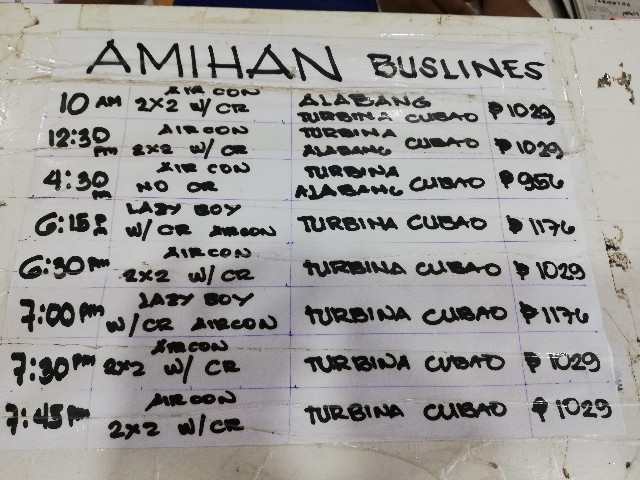 AMIHAN BUSLINES
10 AM AIRCON 2X2 W/ CR ALABANG TURBINA CUBAO ₱1029
12:30 PM AIRCON 2X2 W/ CR TURBINA ALABANG CUBAO ₱1029
4:30 PM AIR CON NO CR TURBINA ALABANG CUBAO ₱956
6:15 PM LAZY BOY W/ CR AIRCON TURBINA CUBAO ₱1176
6:30 PM AIRCON 2X2 W/ CR TURBINA CUBAO ₱1029
7:00 PM LAZY BOY W/CR AIRCON TURBINA CUBAO ₱1176
7:30 PM AIRCON 2X2 W/ CR TURBINA CUBAO ₱1029
7:45 PM AIRCON 2X2 W/ CR TURBINA CUBAO ₱1029